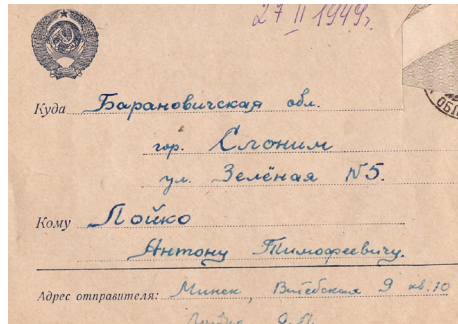 27 II 1949г.
Куда Барановичская обл.
гор. Слоним
ул. Зелёная №5.
Кому Лойко
Антону Тимофеевичу.
Адрес отправителя: Минск, Витебская 9 кв. 10